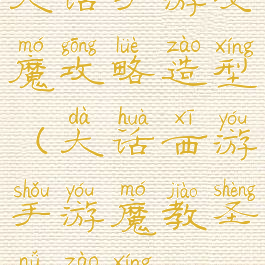 mó gōng lüè zào xíng
魔攻略造型
dà huà xī yóu
（大话西游
shǒu yóu mó jiào shèng
手游魔教圣
nǚ zào xíng